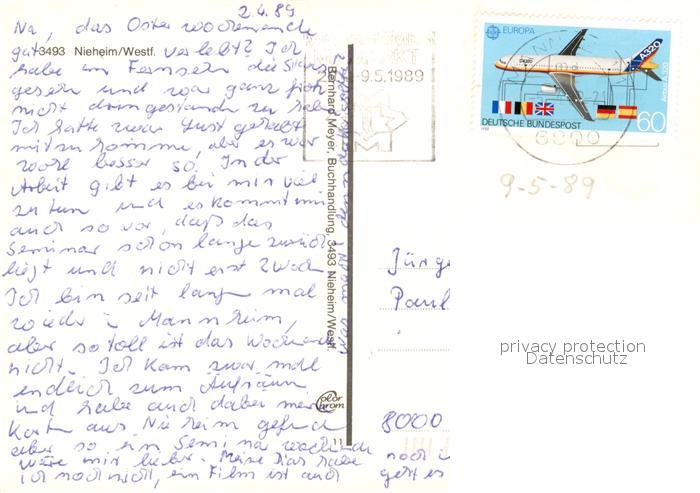 2.4.89
Na, das Osterwochenende
gut verlebt? Ich
3493 Nieheim/Westf.
habe im Fernsehen die
gesehn und war ganz froh
nicht dringestanden zu
Ich hatte zwar Lust gehabt
mitzukommen, aber es war
wohl besser so. In der
Arbeit gibt es bei mir viel
zu tun und es kommt mir
auch so vor, daß das
Seminar schon lange zurück
liegt und nicht erst 2 Wochen
Ich bin seit langem mal
wieder in Mannheim,
aber so toll ist das Wochenende
nicht. Ich kam zwar mal
endlich zum Aufräumen
und habe auch dabei meine
Karte aus Nieheim gefunden
aber so ein Seminarwochenende
wäre mir lieber. Meine Dias habe
ich noch nicht, ein Film ist auch
noch
geht es
Bernhard Meyer, Buchhandlung, 3493 Nieheim/Westf.
Color
chrom
11
9.5.1989
EUROPA
A320
Airbus A 320
DEUTSCHE BUNDESPOST
60
6800
9-5-89
Jürge
Paul
8000
privacy protection
Datenschutz